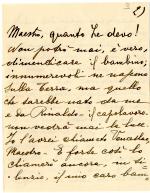 2)
Maestro, quanto Le devo!
Non potrò mai, è vero,
dimenticare il bambino;
innumerevoli ne nascono
sulla Terra, ma quello
che sarebbe nato da me
e da Rinaldo - il capolavoro
non vedrà mai la luce
Io l'avrei chiamato
Maestro. E forse così lo
chiamerò ancora, in si-
lenzio, il mio caro bam